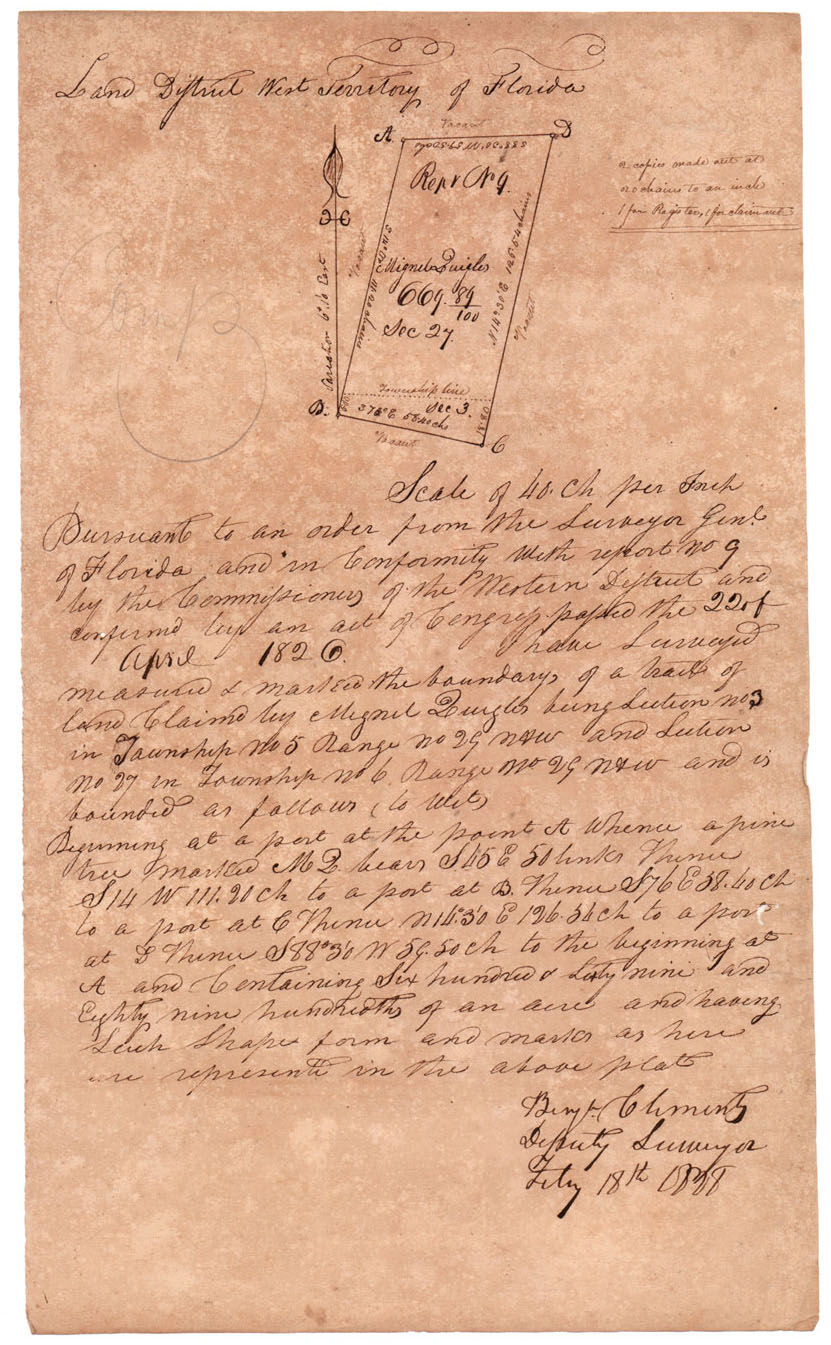 Land District West Territory of Florida
Vacant
A D
S88°30 W 59.50 ch
Rept No 9.
2 copies made out at
20 chains to an inch
1 for Register, 1 for claimant
Vacant
Miguel Quigles
669. 89/100
Sec 27.
N 14°30' E 126.54 chains
Vacant
Variation 6°.10 East
Township line
B. Sec 3.
S76°E 58.40 chs
18.80
C
Vacant
Scale of 40. Ch per Inch
Pursuant to an order from the Surveyor Genl.
of Florida and in Conformity with report No 9
by the Commissioners of the Western District and
confirmd by an act of Congress passed the 22 of
April 1826. have Surveyed
measured & marked the boundarys of a tract of
land Claimd by Miguel Quigles being Section no 3
in Township No 5 Range no 29 N&W and Section
No 27 in Township No 6. Range No 29 N&W and is
bounded as follows (to wit)
Beginning at a post at the point A Whence a pine
tree marked MQ bears S45 E 50 links Thence
S14 W 111.20 ch to a post at B. Thence S76 E 58.40 ch
to a post at C Thence N14°30 E 126.54 ch to a post
at D Thence S88°30 W 59.50 ch to the beginning at
A and Containing Six hundred & Sixty nine and
Eighty nine hundredths of an acre and having
Such Shape form and marks as here
are represented in the above plat
Benjn. Clements
Deputy Surveyor
Feby 18th 1828